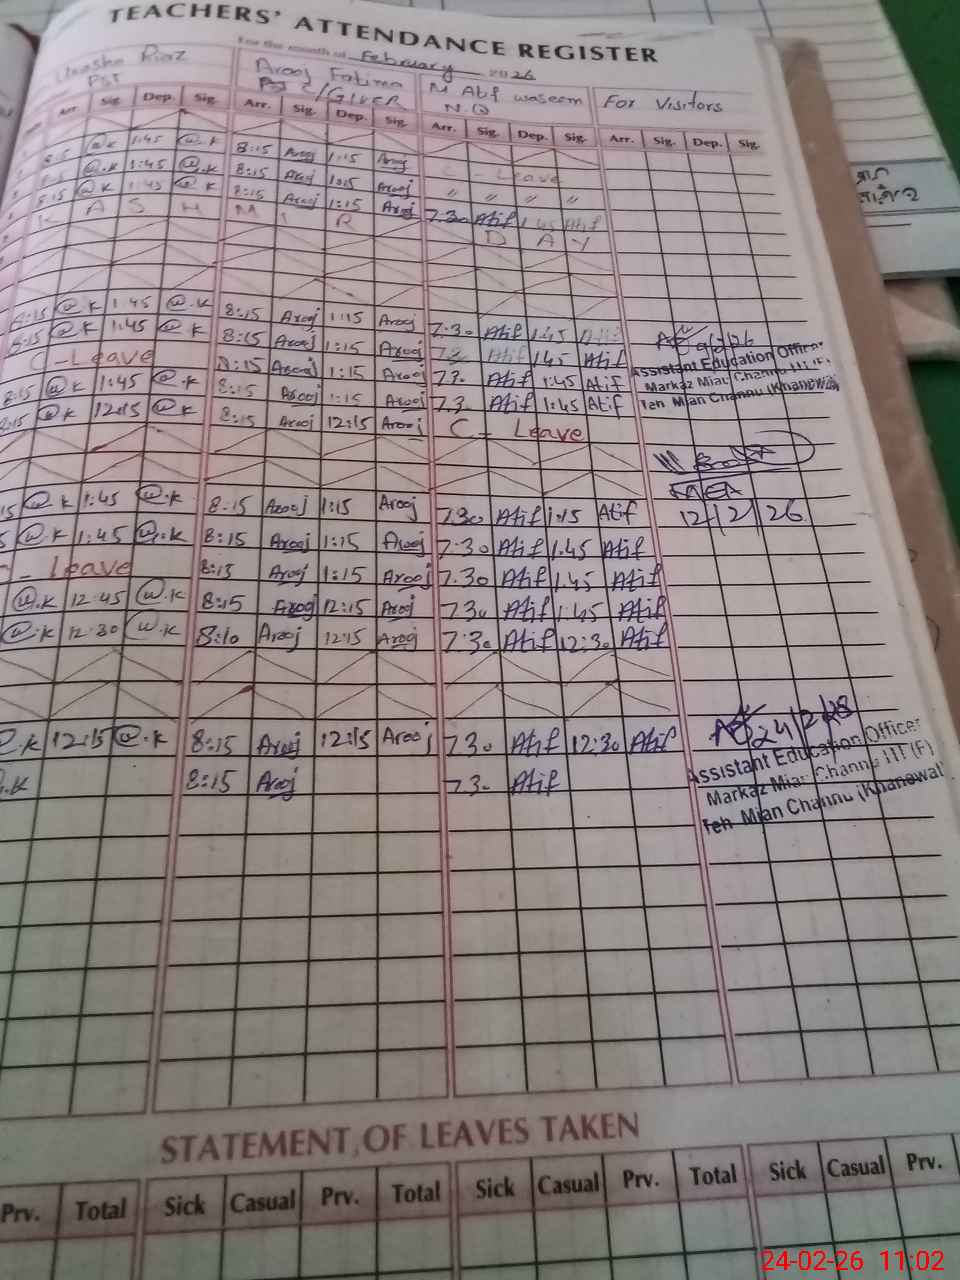 TEACHERS' ATTENDANCE REGISTER
For the month of February 2026
Riaz Arooj Fatima M Atif waseem For Visitors
PST C/GIVER N.Q
Arr. Sig. Dep. Sig. Arr. Sig. Dep. Sig. Arr. Sig. Dep. Sig. Arr. Sig. Dep. Sig.
8:15 @.K 1:45 @.K 8:15 Arooj 1:15 Arooj C - Leave
@.K 1:45 @.K 8:15 Arooj 1:15 Arooj " " " "
8:15 @K 1:45 @K 8:15 Arooj 1:15 Arooj 7.30 Atif 1.45 Atif
K A S H M I R D A Y
8:15 @.K 1:45 @.K 8:15 Arooj 1:15 Arooj 7.30 Atif 1.45
8:15 @.K 1:45 @.K 8:15 Arooj 1:15 Arooj Atif 1.45 Atif
C - Leave 8:15 Arooj 1:15 Arooj 7.3. Atif 1:45 Atif
8:15 @K 1:45 @.K 8:15 Arooj 1:15 Arooj 7.3. Atif 1:45 Atif
8:15 @.K 12:15 @.K 8:15 Arooj 12:15 Arooj C - Leave
Assistant Education Officer
Markaz Mian Channu III (F)
Teh. Mian Channu (Khanewal)
15 @.K 1:45 @.K 8:15 Arooj 1:15 Arooj 7.30 Atif 1:15 Atif 12/2/26
@.K 1:45 @.K 8:15 Arooj 1:15 Arooj 7.30 Atif 1.45 Atif
- Leave 8:15 Arooj 1:15 Arooj 7.30 Atif 1.45 Atif
@.K 12:45 @.K 8:15 Arooj 12:15 Arooj 7.30 Atif 1:45 Atif
@.K 12:30 @.K 8:10 Arooj 12:15 Arooj 7:30 Atif 12:30 Atif
@.K 12:15 @.K 8:15 Arooj 12:15 Arooj 7.30 Atif 12:30 Atif
.K 8:15 Arooj 7.3. Atif
Assistant Education Officer
Markaz Mian Channu III (F)
Teh. Mian Channu (Khanewal)
STATEMENT OF LEAVES TAKEN
Prv. Total Sick Casual Prv. Total Sick Casual Prv. Total Sick Casual Prv.
24-02-26 11:02